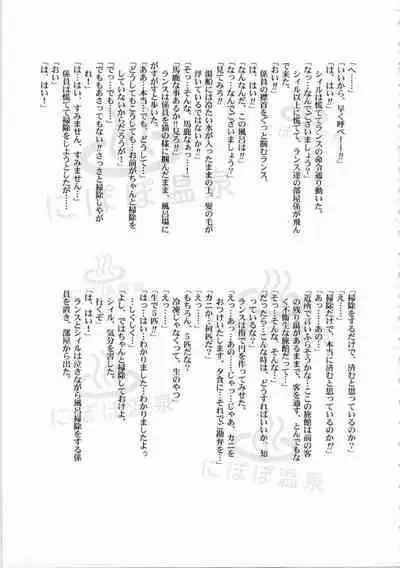 「へ……」
「いいから、早く呼べーー!!」
「は、はい!!」
シィルは慌ててランスの命令通り動いた。
「なっ…なんでございましょう?」
シィル以上に慌てて、ランス達の部屋係が飛んで来た。
「おい!!」
「は、はい!!」
係員の襟首をぐっと掴むランス。
「なんなんだ、この風呂は!!」
「なっ…なんでございましょう?」
見てみろ!!
湯船には冷たい水が入ったままの上、髪の毛が浮いているではないか!!
「そっ…そんな、馬鹿なぁっ…!」
「馬鹿な事あるか!!見ろ!!」
ランスは係員を猫の様に掴んだまま、風呂場にがすがすと歩いた。
「ああっ本当…でも、どうして…」
「どうしてもこうしても…お前がちゃんと掃除をしていないからだろうが!」
「でっ…でも…」
「でももあさってもない!!さっさと掃除しやがれ!」
「は、はい、すみません、すみません…」
係員は慌てて掃除をしようとしたが……
「おい!」
「は、はい!」
「掃除をするだけで、済むと思っているのか?」
「え……」
「掃除だけで、本当に済むと思っているのか!!」
「あっ……あの……」
「近所で言いふらそうかな…ここの旅館は前の客の残り湯があるままで、客を通す、とんでもなく不衛生な旅館だって…」
「そっ…そんな、そんな…」
「だったら…こんな時は、どうすればいいか、知っているな?」
ランスは指で円を作ってみせた。
「えっ…あっ…あの……じゃっ…じゃあ、カニをおつけいたします。夕食に…それでご勘弁を…」
「カニか…何匹だ?」
「えっ……」
「もちろん、5匹だな?」
「えっ……」
「冷凍じゃなくって、生のやつ」
「生で5匹!!」
「はっ…はい…わかりました…わかりましたよぅ…しくしく…」
「よし、ではちゃんと掃除しておけよ。シィル、気分を害した。行くぞ」
「は、はい!」
ランスとシィルは泣きながら風呂掃除をする係員を置き、部屋から出た。
にぽぽ温泉
にぽぽ温泉